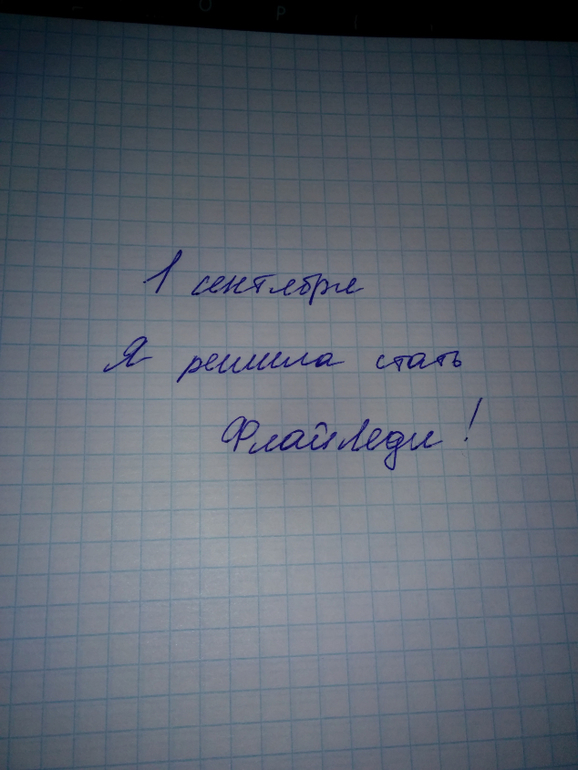 1 сентября
Я решила стать
ФлайЛеди!